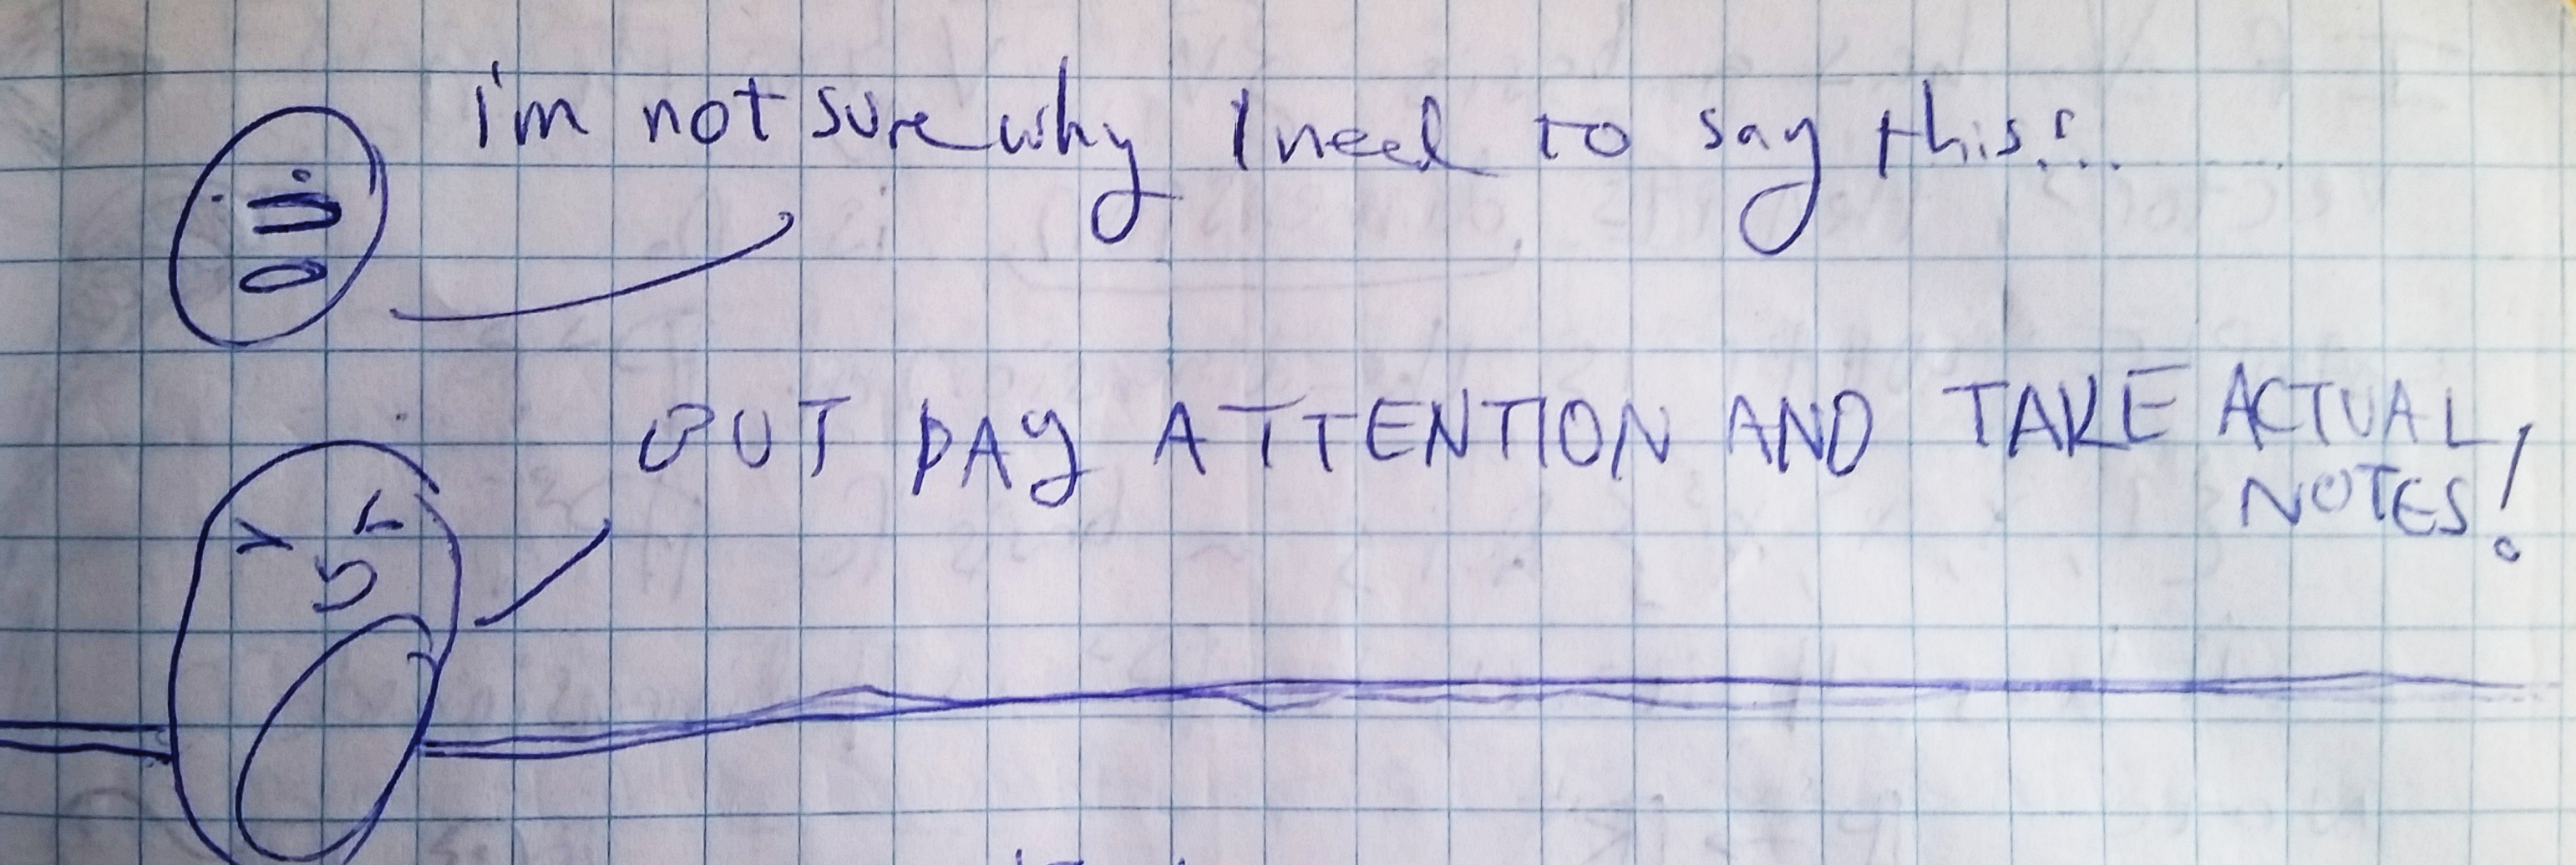 i'm not sure why I need to say this...
BUT PAY ATTENTION AND TAKE ACTUAL
NOTES!